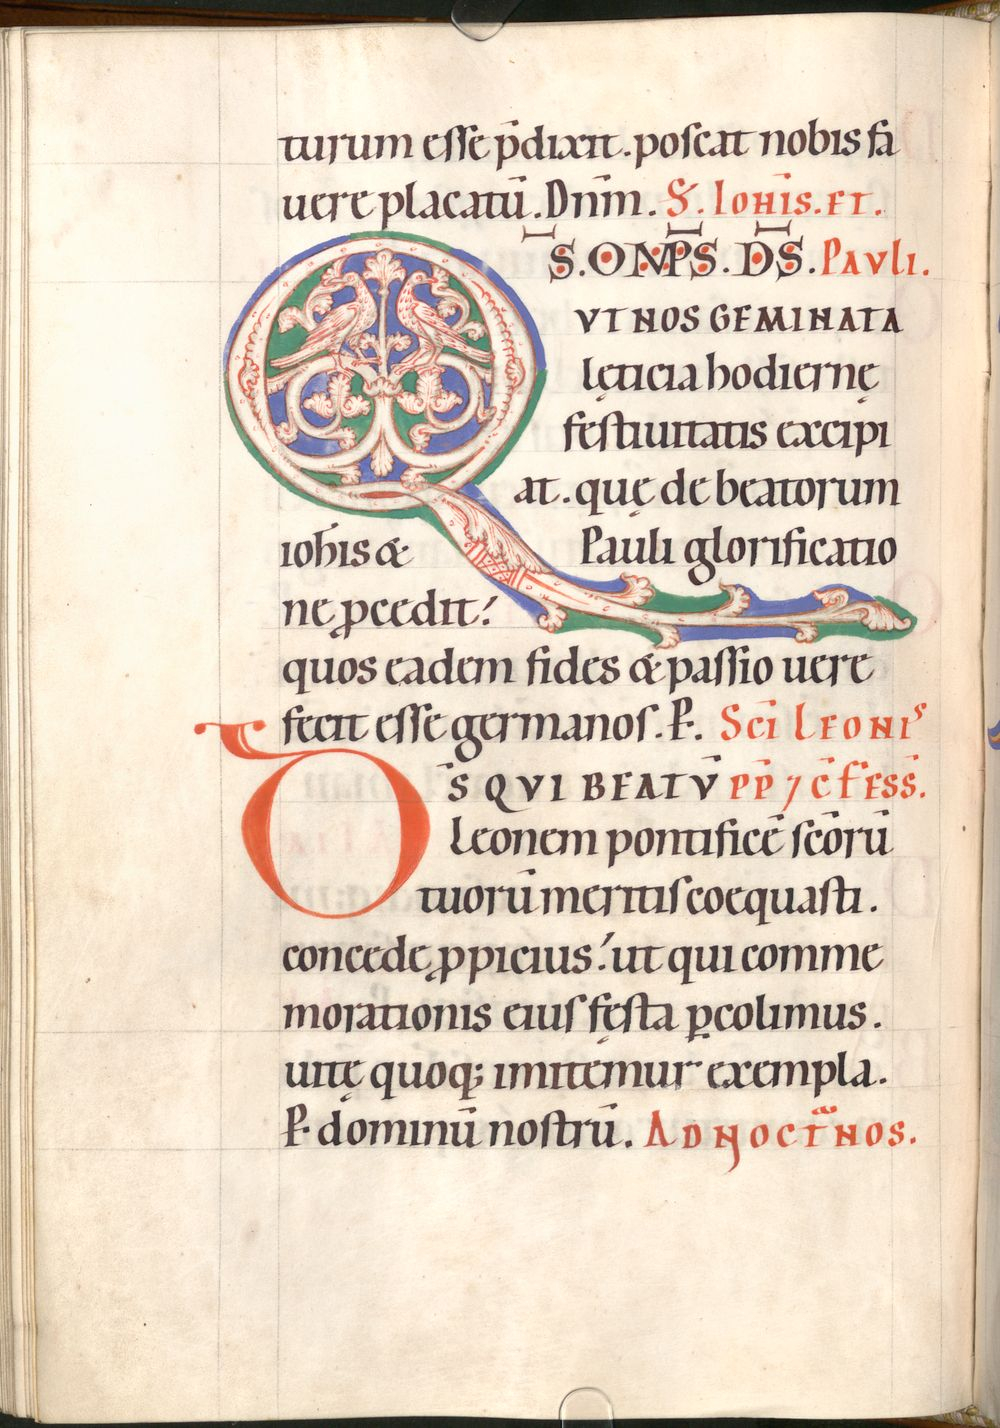 turum esse p̄dixit. poscat nobis fa
uere placatū. Dnm̄. S̄. Ioh̄is. et.
Q S. OMP̄S. D̄S. Pauli.
VT NOS GEMINATA
lęticia hodiernę
festiuitatis excipi
at. quę de beatorum
ioh̄is & Pauli glorificatio
ne ꝓcedit:
quos eadem fides & passio uere
fecit esse germanos. P̄. Sc̄i Leonis
D S̄ QVI BEATV̄ PP̄ ⁊ c̄fess̄.
Leonem pontificē sc̄orū
tuorū meritis coequasti.
concede ꝓpicius: ut qui comme
morationis eius fęsta ꝑcolimus.
uitę quoq; imitemur exempla.
P̄. dominū nostrū. Ad noct̄nos.